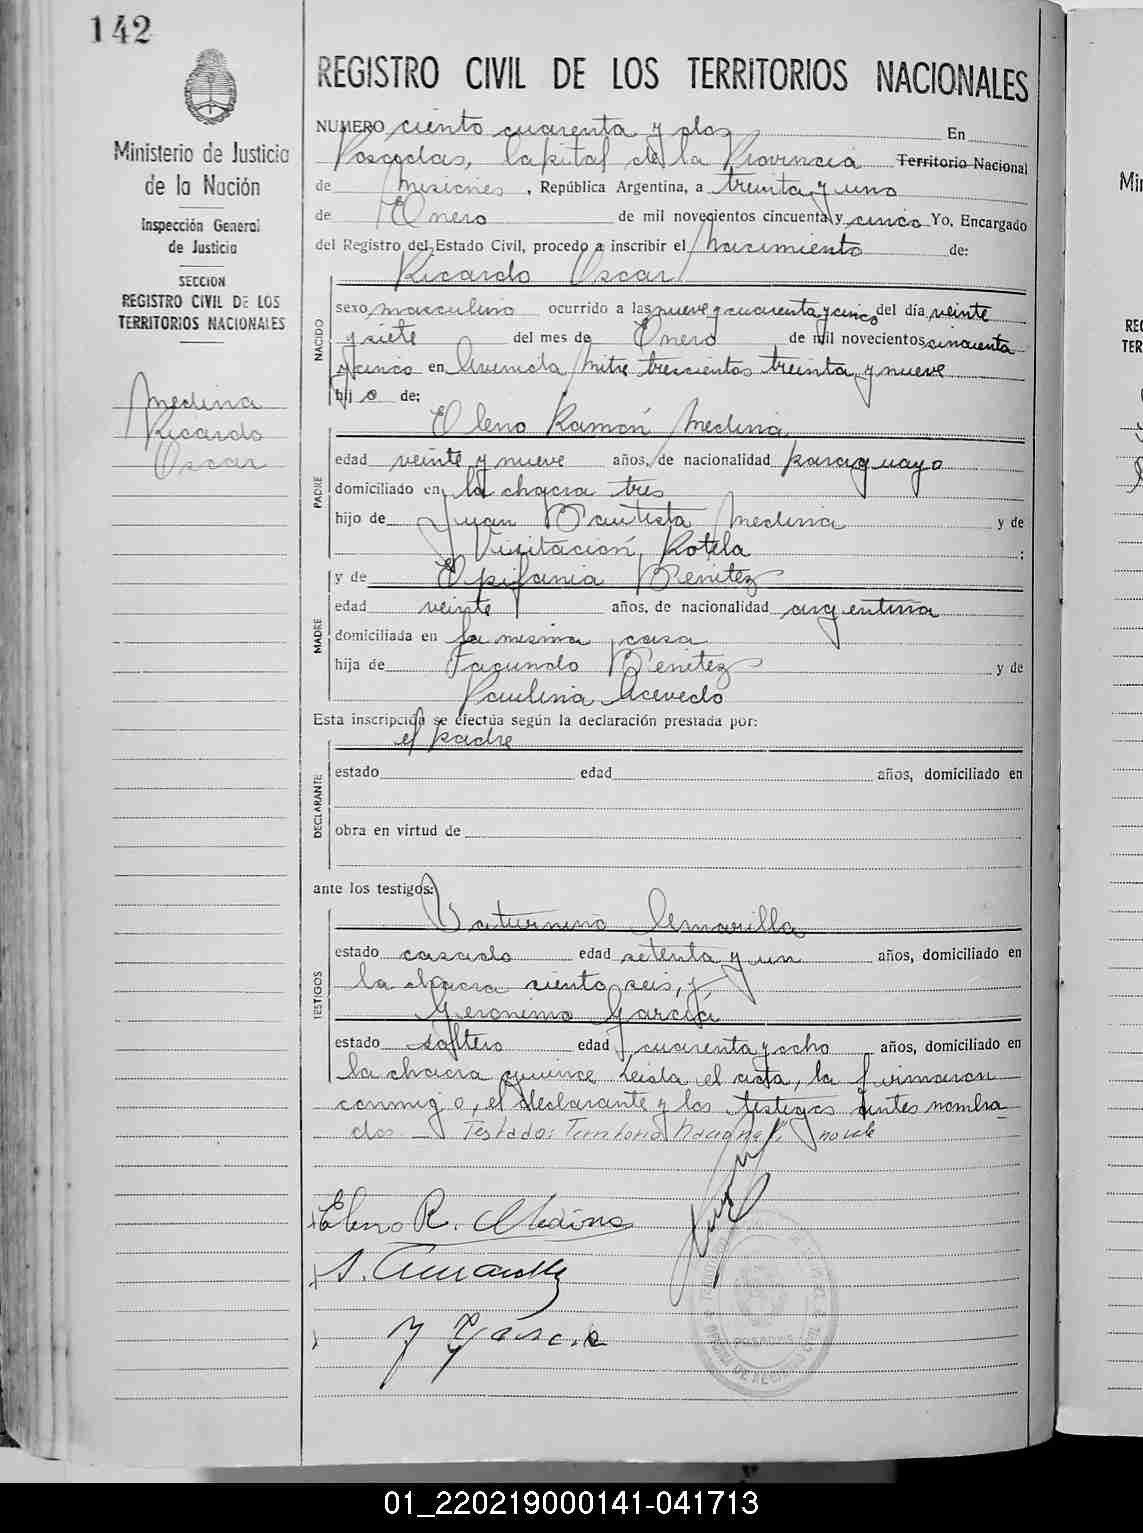 142
Ministerio de Justicia
de la Nación
Inspección General
de Justicia
SECCION
REGISTRO CIVIL DE LOS
TERRITORIOS NACIONALES
Medina
Ricardo
Oscar
REGISTRO CIVIL DE LOS TERRITORIOS NACIONALES
NUMERO ciento cuarenta y dos En
Posadas, Capital de la Provincia Territorio Nacional
de Misiones, República Argentina, a treinta y uno
de Enero de mil novecientos cincuenta y cinco Yo, Encargado
del Registro del Estado Civil, procedo a inscribir el Nacimiento de:
Ricardo Oscar
NACIDO
sexo masculino ocurrido a las nueve y cuarenta y cinco del día veinte
y siete del mes de Enero de mil novecientos cincuenta
y cinco en Avenida Mitre trescientos treinta y nueve
hijo de:
Eleno Ramón Medina
PADRE
edad veinte y nueve años, de nacionalidad paraguayo
domiciliado en la chacra tres
hijo de Juan Bautista Medina y de
Visitación Rotela;
y de Epifania Benitez
MADRE
edad veinte años, de nacionalidad argentina
domiciliada en la misma casa
hija de Facundo Benitez y de
Paulina Acevedo
Esta inscripción se efectúa según la declaración prestada por:
el padre
DECLARANTE
estado edad años, domiciliado en
obra en virtud de
ante los testigos:
Saturnino Amarilla
TESTIGOS
estado casado edad setenta y un años, domiciliado en
la chacra ciento seis, y
Geronimo García
estado soltero edad cuarenta y ocho años, domiciliado en
la chacra quince Leída el acta, la firmaron
conmigo, el declarante y los testigos antes nombra
dos. — Testado: Territorio Nacional, no vale
Eleno R. Medina
S. Amarilla
J García
POSADAS
01_220219000141-041713